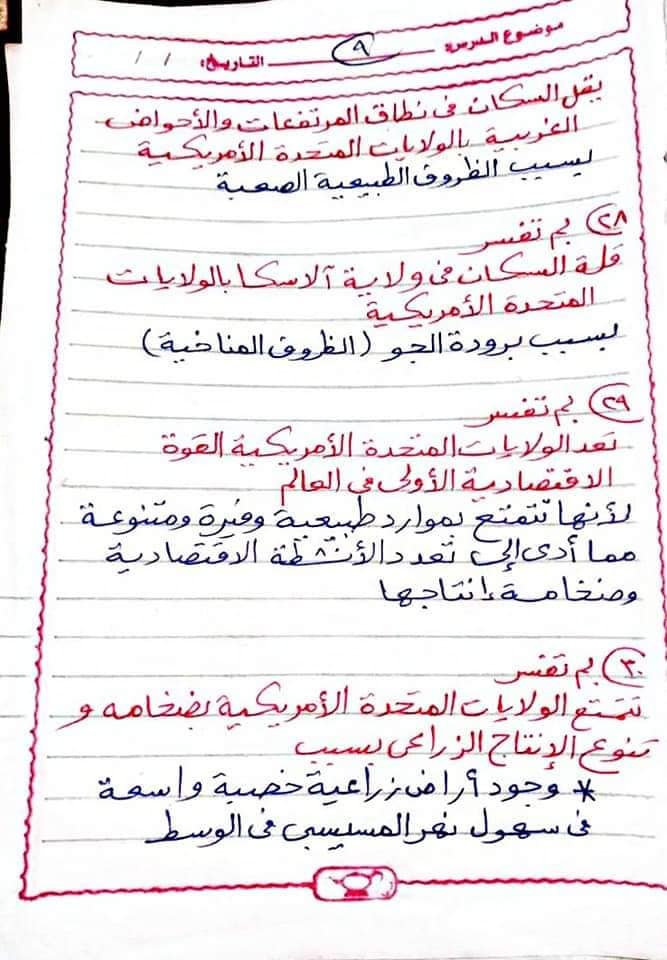 موضوع الدرس: ٩ التاريخ: / /
يقل السكان فى نطاق المرتفعات والأحواض
الغربية بالولايات المتحدة الأمريكية
بسبب الظروف الطبيعية الصعبة
٢٨ بم تفسر
قلة السكان فى ولاية آلاسكا بالولايات
المتحدة الأمريكية
بسبب برودة الجو (الظروف المناخية)
٢٩ بم تفسر
تعد الولايات المتحدة الأمريكية القوة
الاقتصادية الأولى فى العالم
لأنها تتمتع بموارد طبيعية وفيرة ومتنوعة
مما أدى إلى تعدد الأنشطة الاقتصادية
وضخامة إنتاجها
٣٠ بم تفسر
تتمتع الولايات المتحدة الأمريكية بضخامه و
تنوع الإنتاج الزراعى بسبب
* وجود أراض زراعية خصبة واسعة
فى سهول نهر المسيسبى فى الوسط